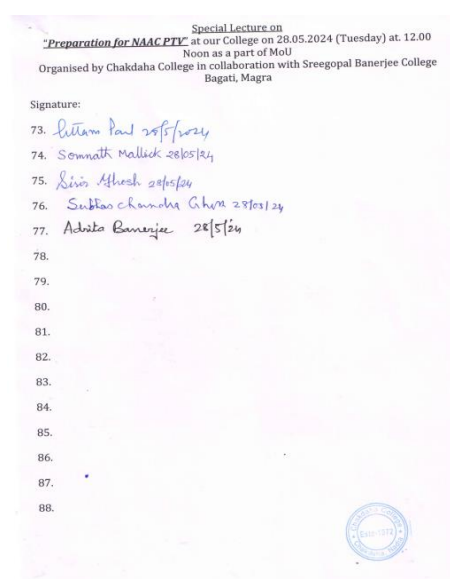 Special Lecture on
"Preparation for NAAC PTV" at our College on 28.05.2024 (Tuesday) at. 12.00
Noon as a part of MoU
Organised by Chakdaha College in collaboration with Sreegopal Banerjee College
Bagati, Magra
Signature:
73. Paul
74. Somnath Mallick 28/05/24
75. Ghosh 28/05/24
76. Subhas Chandra Ghosh
77. Adrita Banerjee 28/5/24
78.
79.
80.
81.
82.
83.
84.
85.
86.
87.
88.
Chakdaha College
Estd-1972